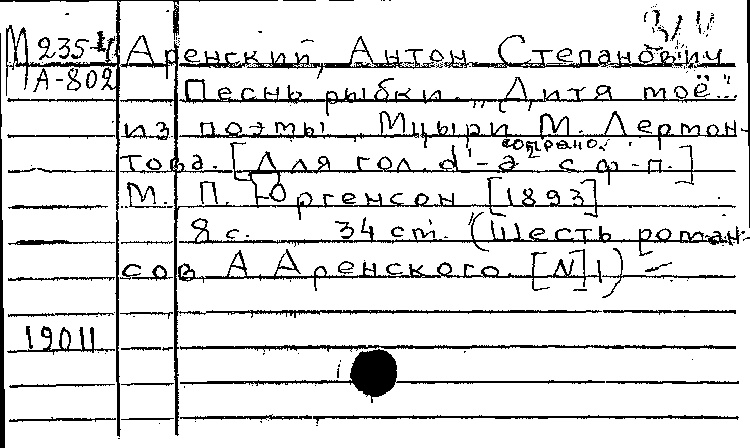 3/V
М 235-4 Аренский, Антон Степанович
А-802 Песнь рыбки. „Дитя моё..."
из поэмы Мцыри М. Лермон-
това. [Для гол. d¹-a² с ф-п.]
сопрано.
М. П. Юргенсон [1893]
8 с. 34 cm. (Шесть роман-
сов А. Аренского. [N] 1) –
19011